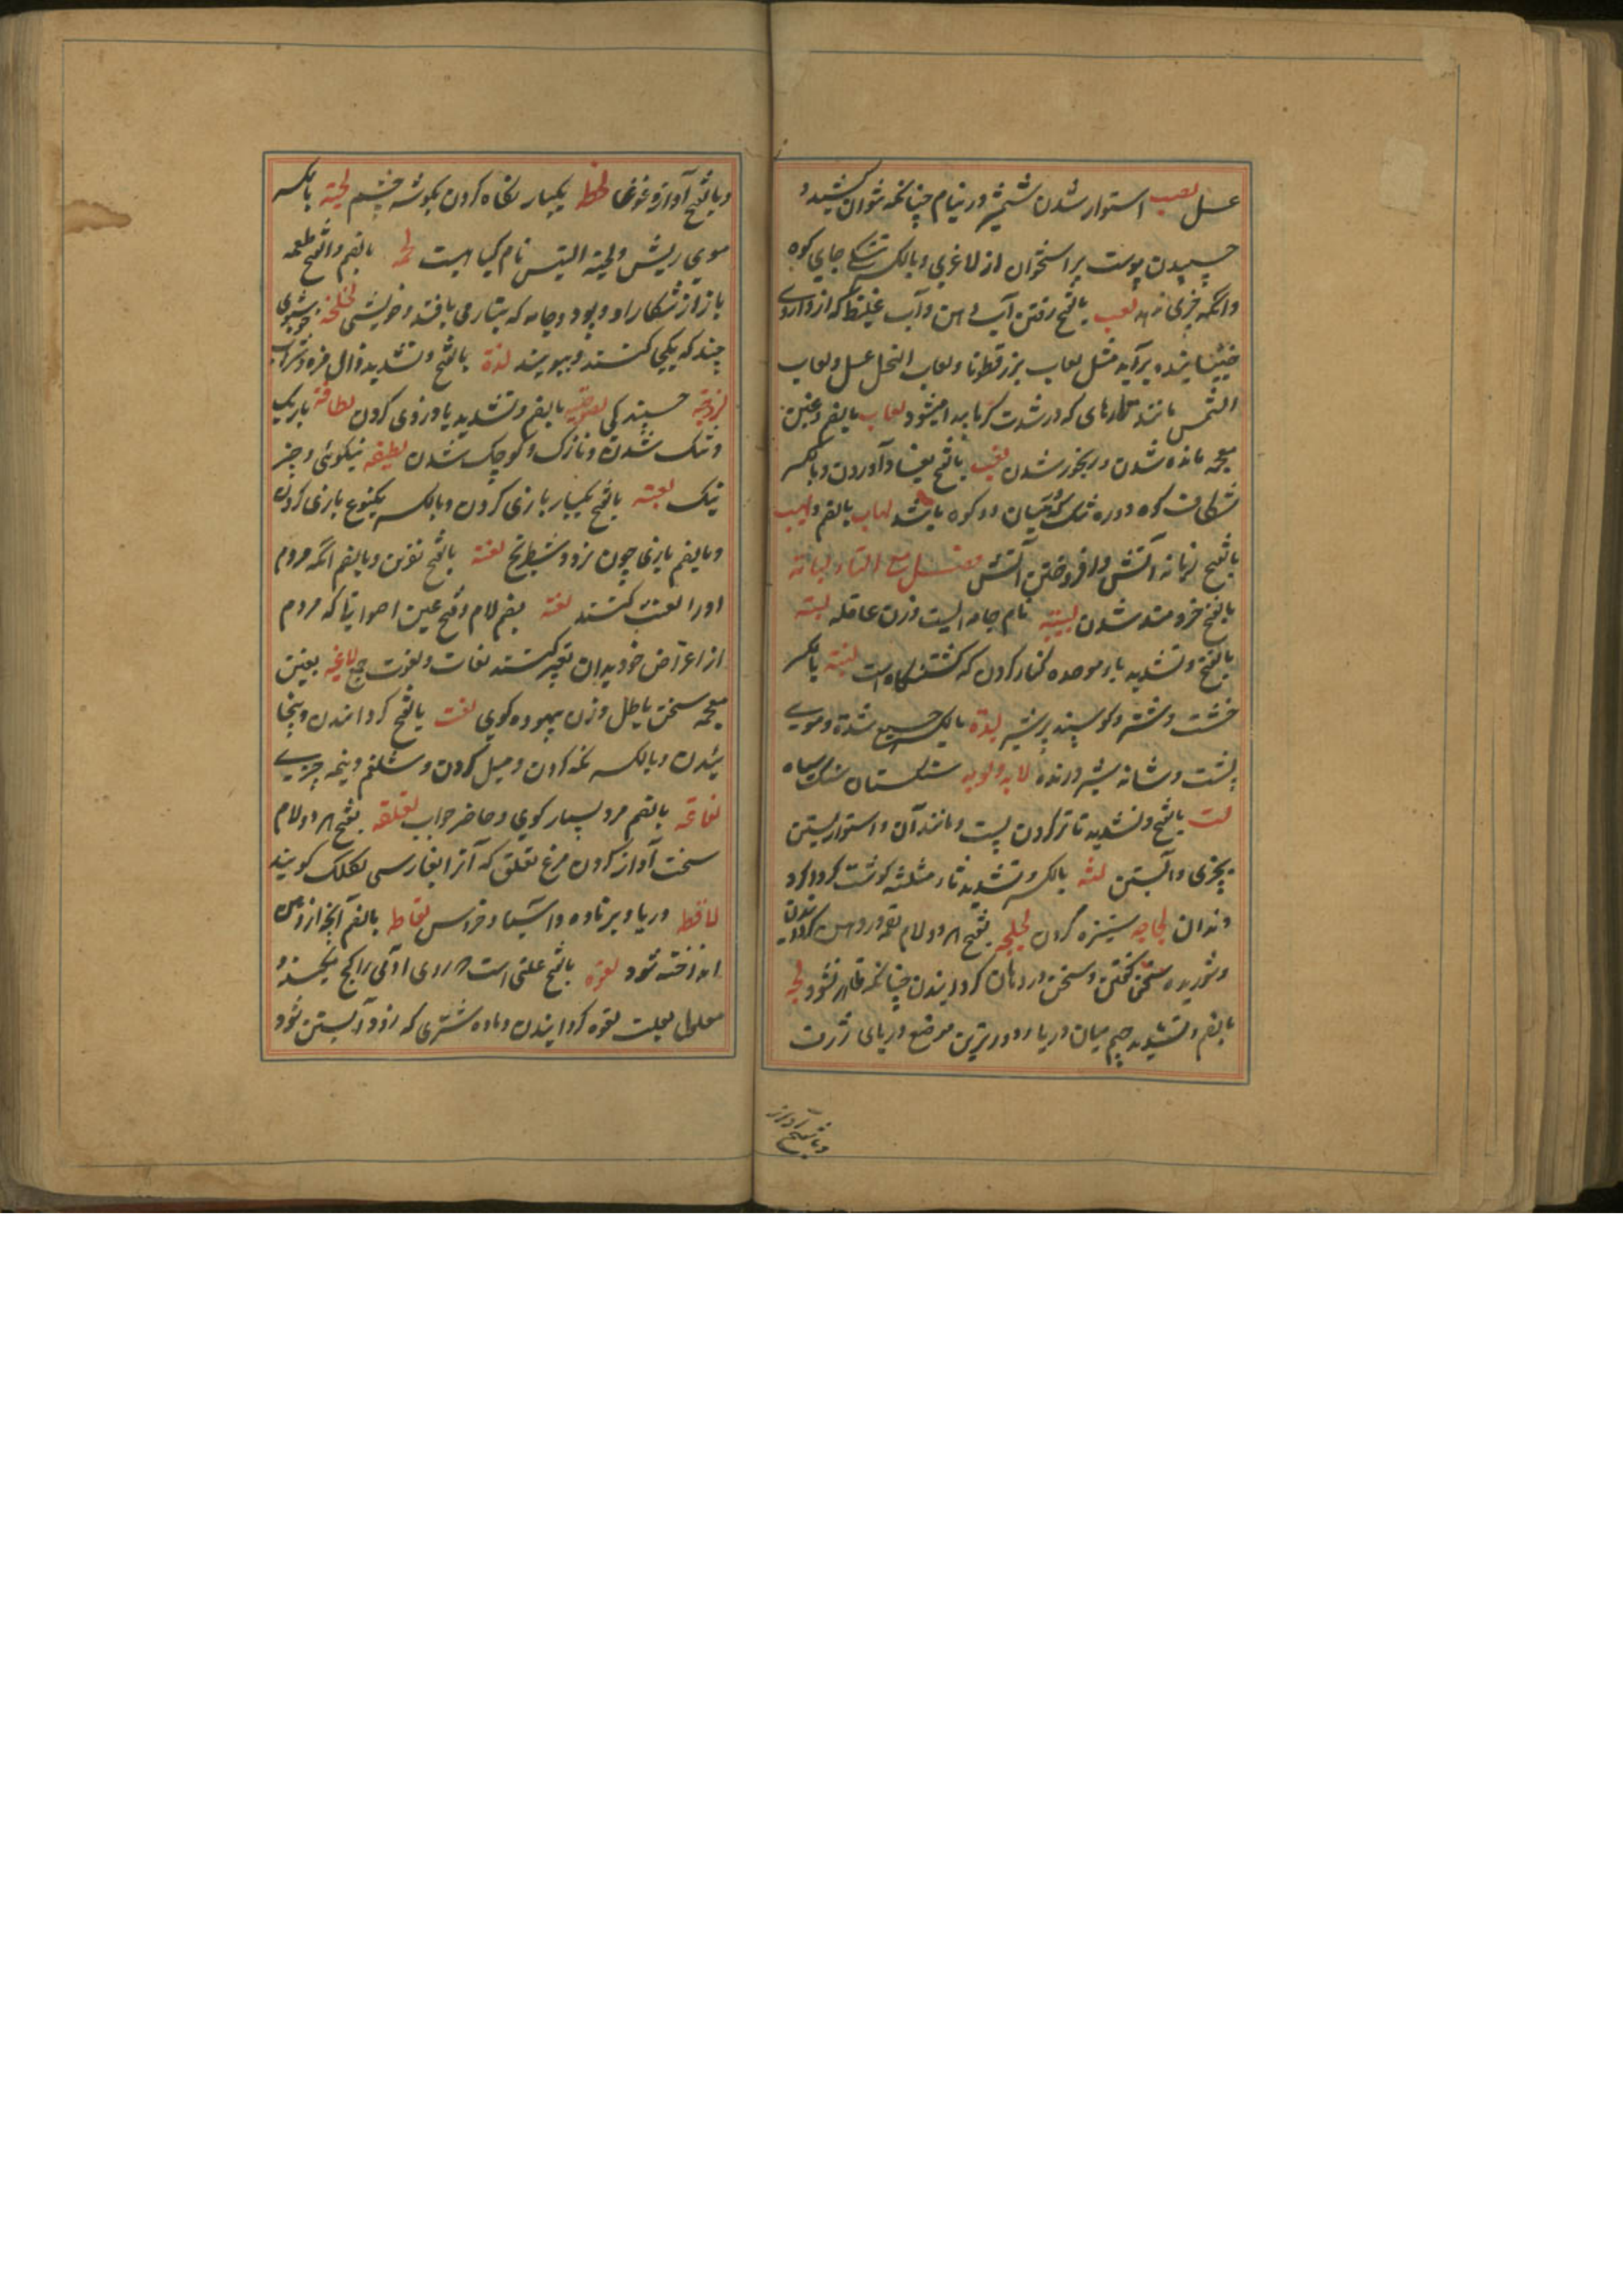 عسل لصب استوار شدن شمشیر در نیام چنانکه نتوان کشید و
چسپیدن پوست بر استخوان از لاغری و بالکسر تنگی جای کوه
و انکه چیزی ندهد لعب بالفتح رفتن آب دهن و آب غلیظ که از داروی
خیسانیده برآید مثل لعاب بزرقطونا و لعاب النحل عسل و لعاب
الشمس مانند تارهای که در شدت گرما پیدا میشود لغاب بالضم و غین
معجمه مانده شدن و رنجور شدن لغب بالفتح بفساد آوردن و بالکسر
شکاف کوه و دره تنک که میان دو کوه باشد لهاب بالضم و لهیب
بالفتح زبانه آتش و افروختن آتش فصل مع التاء لبابة
بالفتح خردمند شدن لبیبة نام جامه ایست وزن عاقله لبة
بالفتح و تشدید باء موحده کنار کردن که کشتنگاه است لبنة بالکسر
خشت و شتر و کوسپند پرشیر لبدة بالکسر جمع شده و موی
پشت و شانه شیر درنده لابه و لوبه سنگستان سنگ سیاه
لت بالفتح و تشدید تا تر کردن پست و مانند آن و استوار بستن
بچیزی و آبستن لثه بالکسر و تشدید ثاء مثلثه کوشت کرداکرد
دندان لجاجه ستیزه کردن لجلجه بفتح هر دو لام لقمه در دهن کردانیدن
و شوریده سخن کفتن و سخن در دهان کردانیدن چنانکه ظاهر نشود لجه
بالضم و تشدید جیم میان دریا و دورترین موضع دریای ژرف
وبالفتح آواز
وبالفتح آواز و غوغا لحظة یکبار نکاه کردن بکوشه چشم لحیة بالکسر
موی ریش و لحیة التیس نام کیاهیست لحمة بالضم و الفتح طعمه
باز از شکار او و پود جامه که بتار می بافند و خویشی لخلخه خوشبوی
چند که یکجا کنند و ببویند لذة بالفتح و تشدید ذال مزه و شراب
لزوجة چسپندکی لصوصیة بالضم و تشدید یا دزدی کردن لطافة باریک
و تنک شدن و نازک و کوچک شدن لطیفه نیکوئی و چیز
نیک لعبة بالفتح یکبار بازی کردن و بالکسر یکنوع بازی کردن
و بالضم بازی چون نرد و شطرنج لعنة بالفتح نفرین و بالضم انکه مردم
او را لعنت کنند لغة بضم لام و فتح غین اصواتیکه مردم
از اغراض خود بدان تعبیر کنند لغات و لغوت جمع لاغیه بغین
معجمه سخن باطل و زن بیهوده کوی لفت بالفتح کردانیدن و پیچا
نیدن و بالکسر نکه کردن و میل کردن و شلغم و نیمه چیزی
لقاعة بالضم مرد بسیار کوی و حاضر جواب لقلقه بفتح هر دو لام
سخت آواز کردن مرغ لقلق که آنرا بفارسی لکلک کویند
لاقطه دریا و بزماده و آسیا و خروس لقاطه بالضم آنچه از دهن
انداخته شود لقوة بالفتح علتی است که روی آدمی را کج میکند و
معلول بعلت لقوه کردانیدن و ماده شتری که زود آبستن شود